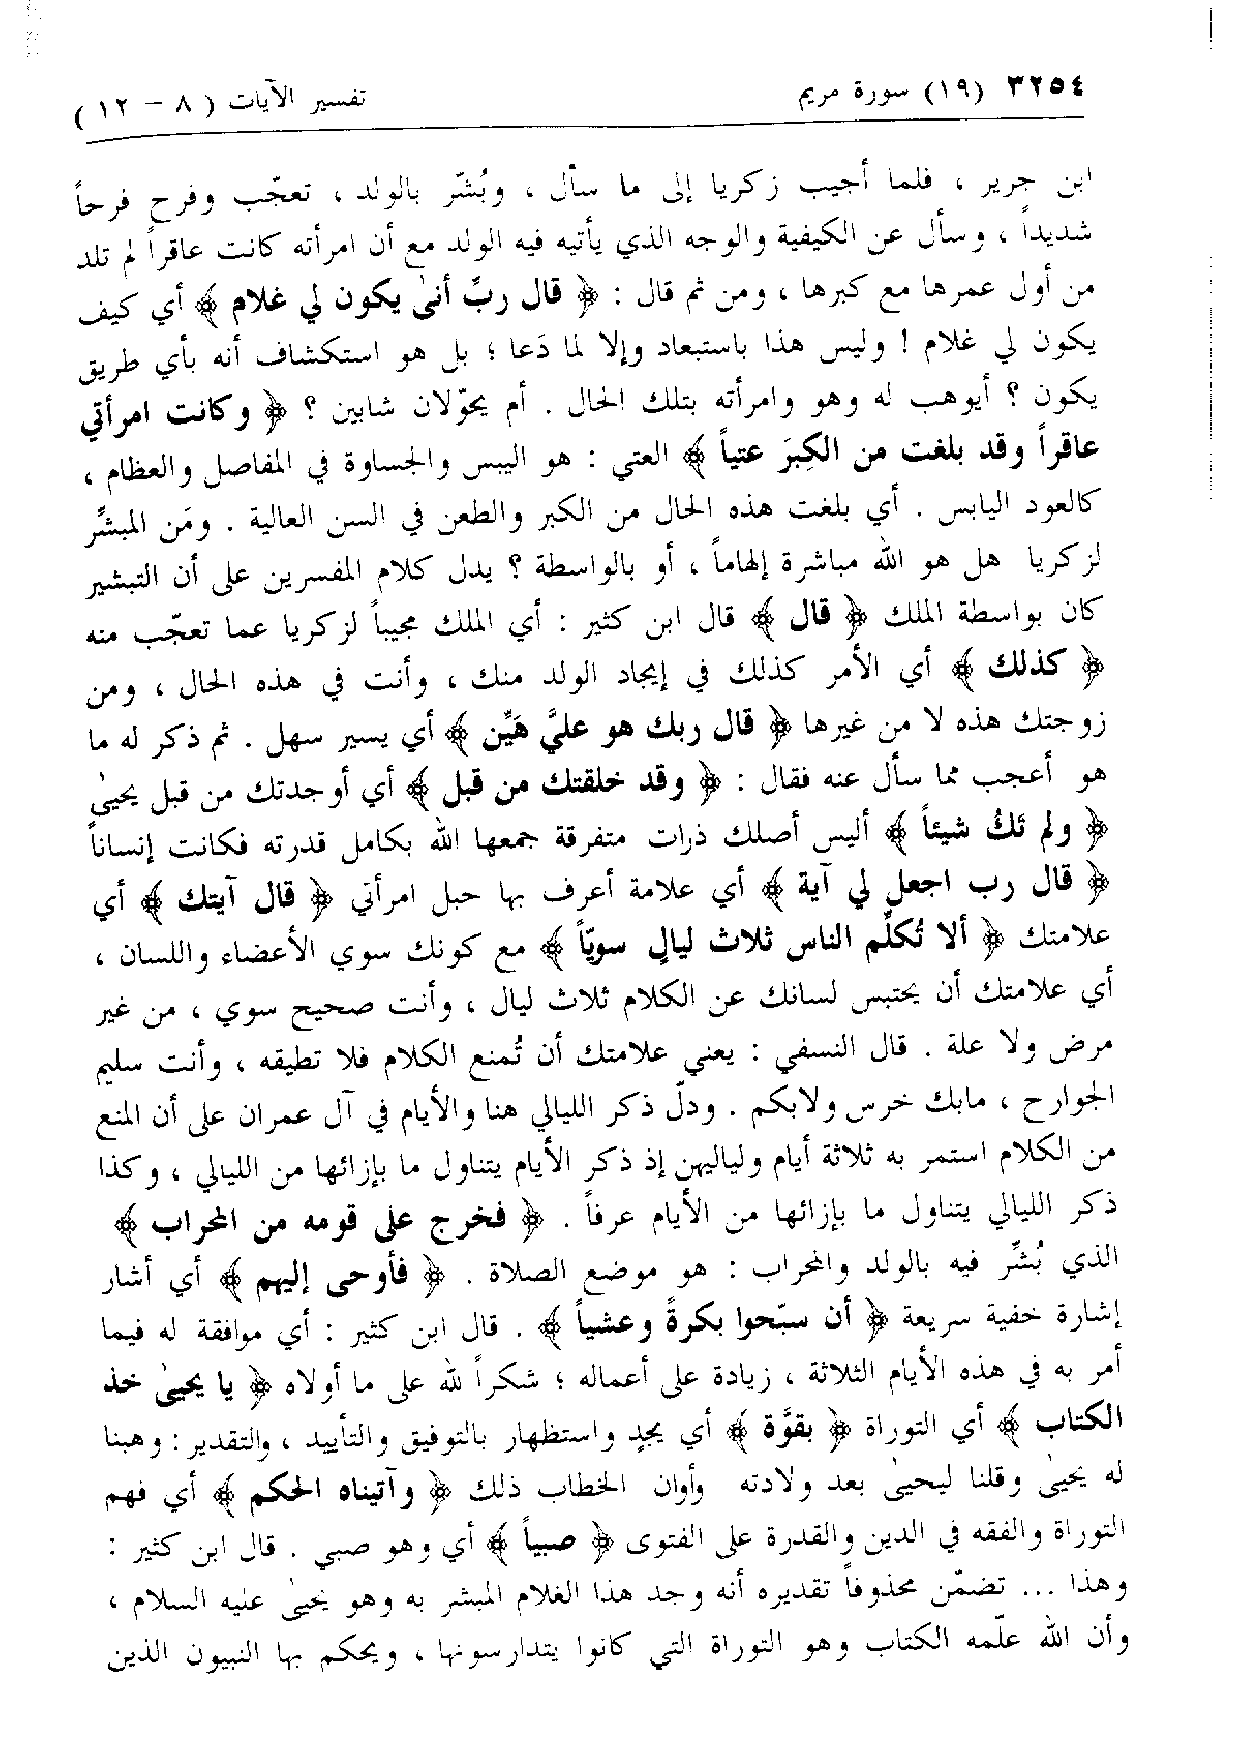 ٣٢٥٤ (١٩) سورة مريم تفسير الآيات ( ٨ - ١٢ )
ابن جرير ، فلما أجيب زكريا إلى ما سأل ، وبُشّر بالولد ، تعجّب وفرح فرحاً
شديداً ، وسأل عن الكيفية والوجه الذي يأتيه فيه الولد مع أن امرأته كانت عاقراً لم تلد
من أول عمرها مع كبرها ، ومن ثم قال : ﴿ قال ربِّ أنىٰ يكون لي غلام ﴾ أي كيف
يكون لي غلام ! وليس هذا باستبعاد وإلا لما دَعا ؛ بل هو استكشاف أنه بأي طريق
يكون ؟ أيوهب له وهو وامرأته بتلك الحال . أم يحوّلان شابين ؟ ﴿ وكانت امرأتي
عاقراً وقد بلغت من الكِبَر عتياً ﴾ العتي : هو اليبس والجساوة في المفاصل والعظام ،
كالعود اليابس . أي بلغت هذه الحال من الكبر والطعن في السن العالية . ومَن المبشِّر
لزكريا هل هو الله مباشرة إلهاماً ، أو بالواسطة ؟ يدل كلام المفسرين على أن التبشير
كان بواسطة الملك ﴿ قال ﴾ قال ابن كثير : أي الملك مجيباً لزكريا عما تعجّب منه
﴿ كذلك ﴾ أي الأمر كذلك في إيجاد الولد منك ، وأنت في هذه الحال ، ومن
زوجتك هذه لا من غيرها ﴿ قال ربك هو عليَّ هَيِّن ﴾ أي يسير سهل . ثم ذكر له ما
هو أعجب مما سأل عنه فقال : ﴿ وقد خلقتك من قبل ﴾ أي أوجدتك من قبل يحيىٰ
﴿ ولم تَكُ شيئاً ﴾ أليس أصلك ذرات متفرقة جمعها الله بكامل قدرته فكانت إنساناً
﴿ قال رب اجعل لي آية ﴾ أي علامة أعرف بها حبل امرأتي ﴿ قال آيتك ﴾ أي
علامتك ﴿ ألا تُكلِّم الناس ثلاث ليالٍ سويّاً ﴾ مع كونك سوي الأعضاء واللسان ،
أي علامتك أن يحتبس لسانك عن الكلام ثلاث ليال ، وأنت صحيح سوي ، من غير
مرض ولا علة . قال النسفي : يعني علامتك أن تُمنع الكلام فلا تطيقه ، وأنت سليم
الجوارح ، مابك خرس ولابكم . ودلّ ذكر الليالي هنا والأيام في آل عمران على أن المنع
من الكلام استمر به ثلاثة أيام ولياليهن إذ ذكر الأيام يتناول ما بإزائها من الليالي ، وكذا
ذكر الليالي يتناول ما بإزائها من الأيام عرفاً . ﴿ فخرج على قومه من المحراب ﴾
الذي بُشِّر فيه بالولد والمحراب : هو موضع الصلاة . ﴿ فأوحى إليهم ﴾ أي أشار
إشارة خفية سريعة ﴿ أن سبّحوا بكرةً وعشياً ﴾ . قال ابن كثير : أي موافقة له فيما
أمر به في هذه الأيام الثلاثة ، زيادة على أعماله ؛ شكراً لله على ما أولاه ﴿ يا يحيىٰ خذ
الكتاب ﴾ أي التوراة ﴿ بقوَّة ﴾ أي بجدٍ واستظهار بالتوفيق والتأييد ، والتقدير : وهبنا
له يحيىٰ وقلنا ليحيىٰ بعد ولادته وأوان الخطاب ذلك ﴿ وآتيناه الحكم ﴾ أي فهم
التوراة والفقه في الدين والقدرة على الفتوى ﴿ صبياً ﴾ أي وهو صبي . قال ابن كثير :
وهذا ... تضمّن محذوفاً تقديره أنه وجد هذا الغلام المبشر به وهو يحيىٰ عليه السلام ،
وأن الله علّمه الكتاب وهو التوراة التي كانوا يتدارسونها ، ويحكم بها النبيون الذين